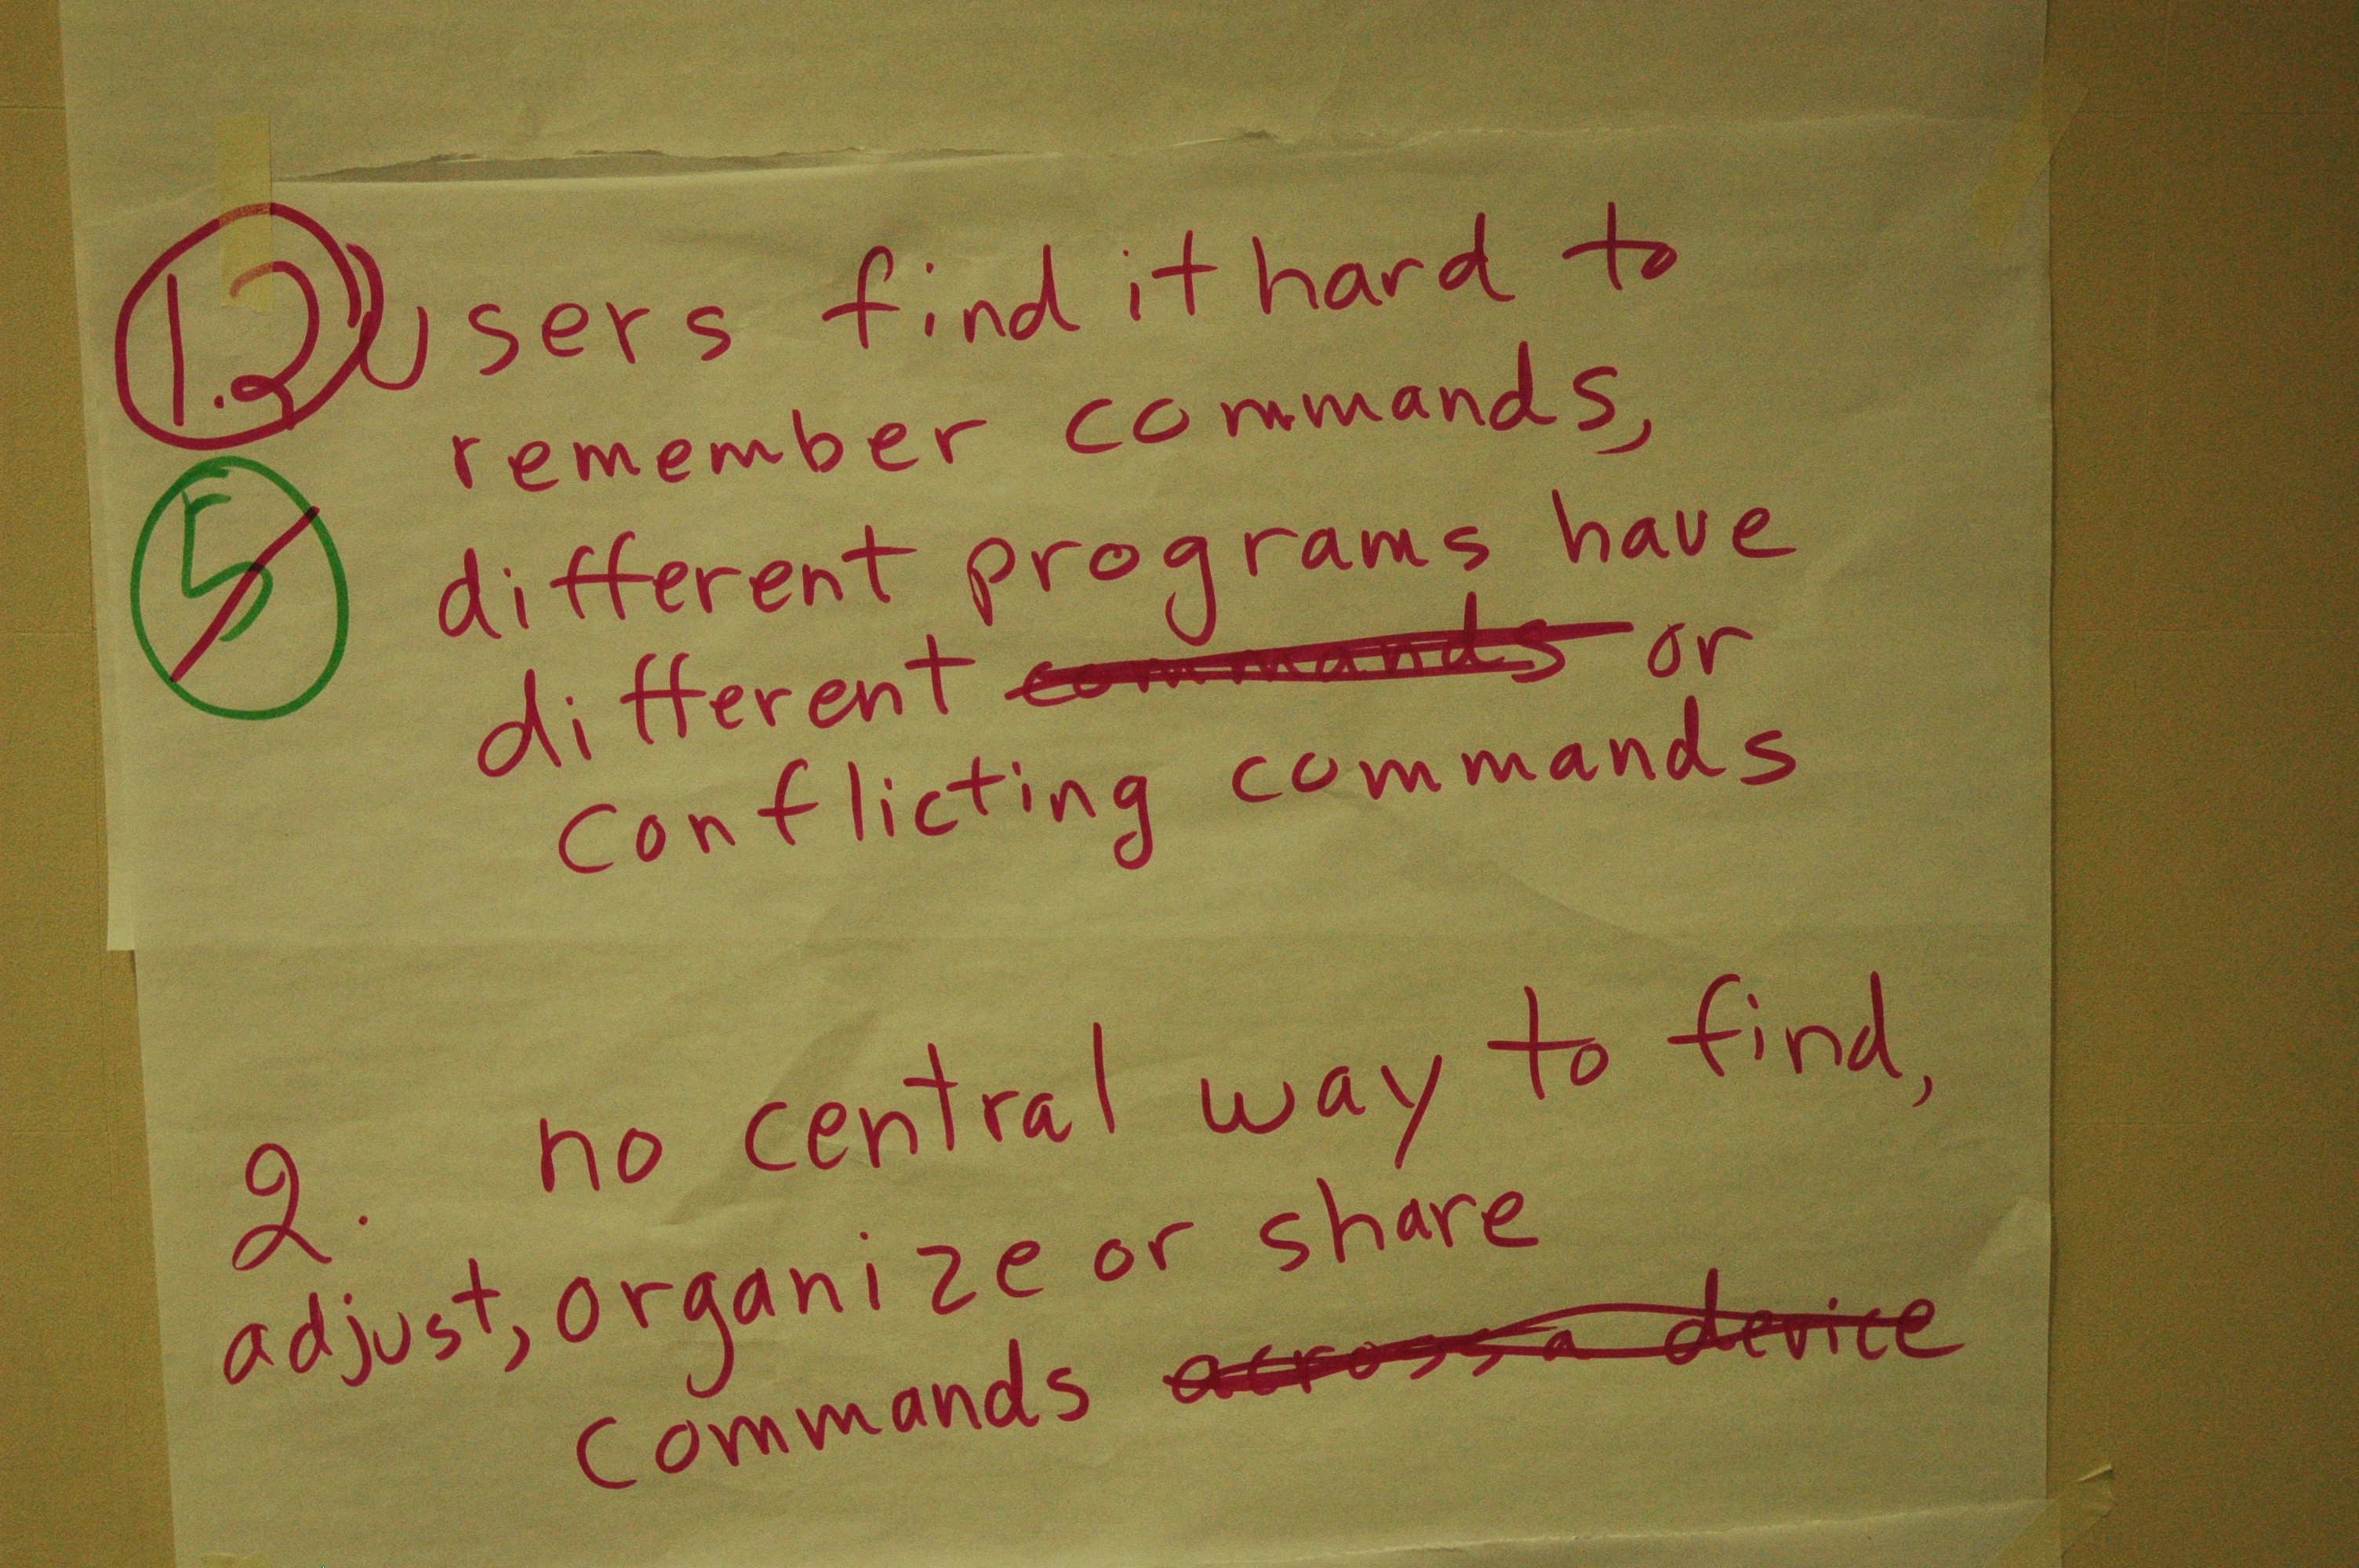 1.2 Users find it hard to
remember commands,
5 different programs have
different commands or
conflicting commands
2. no central way to find,
adjust, organize or share
commands across a device